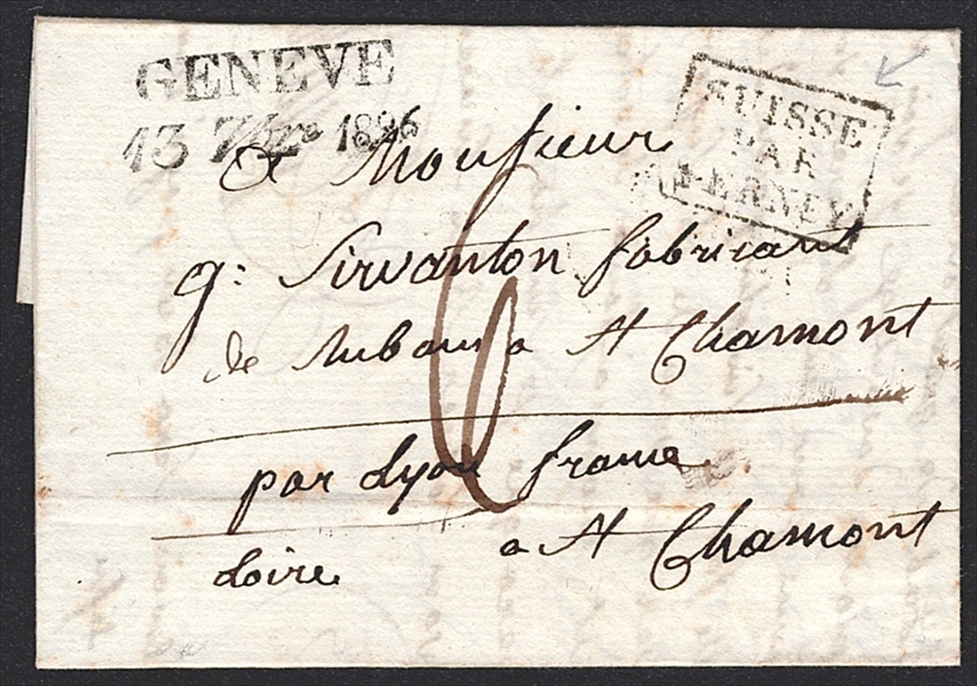 GENEVE
13 7bre 1826
SUISSE
PAR
FERNEY
A Monsieur
g: Sirvanton fabricant
de Rubans a St Chamont
par Lyon france
Loire a St Chamont
6